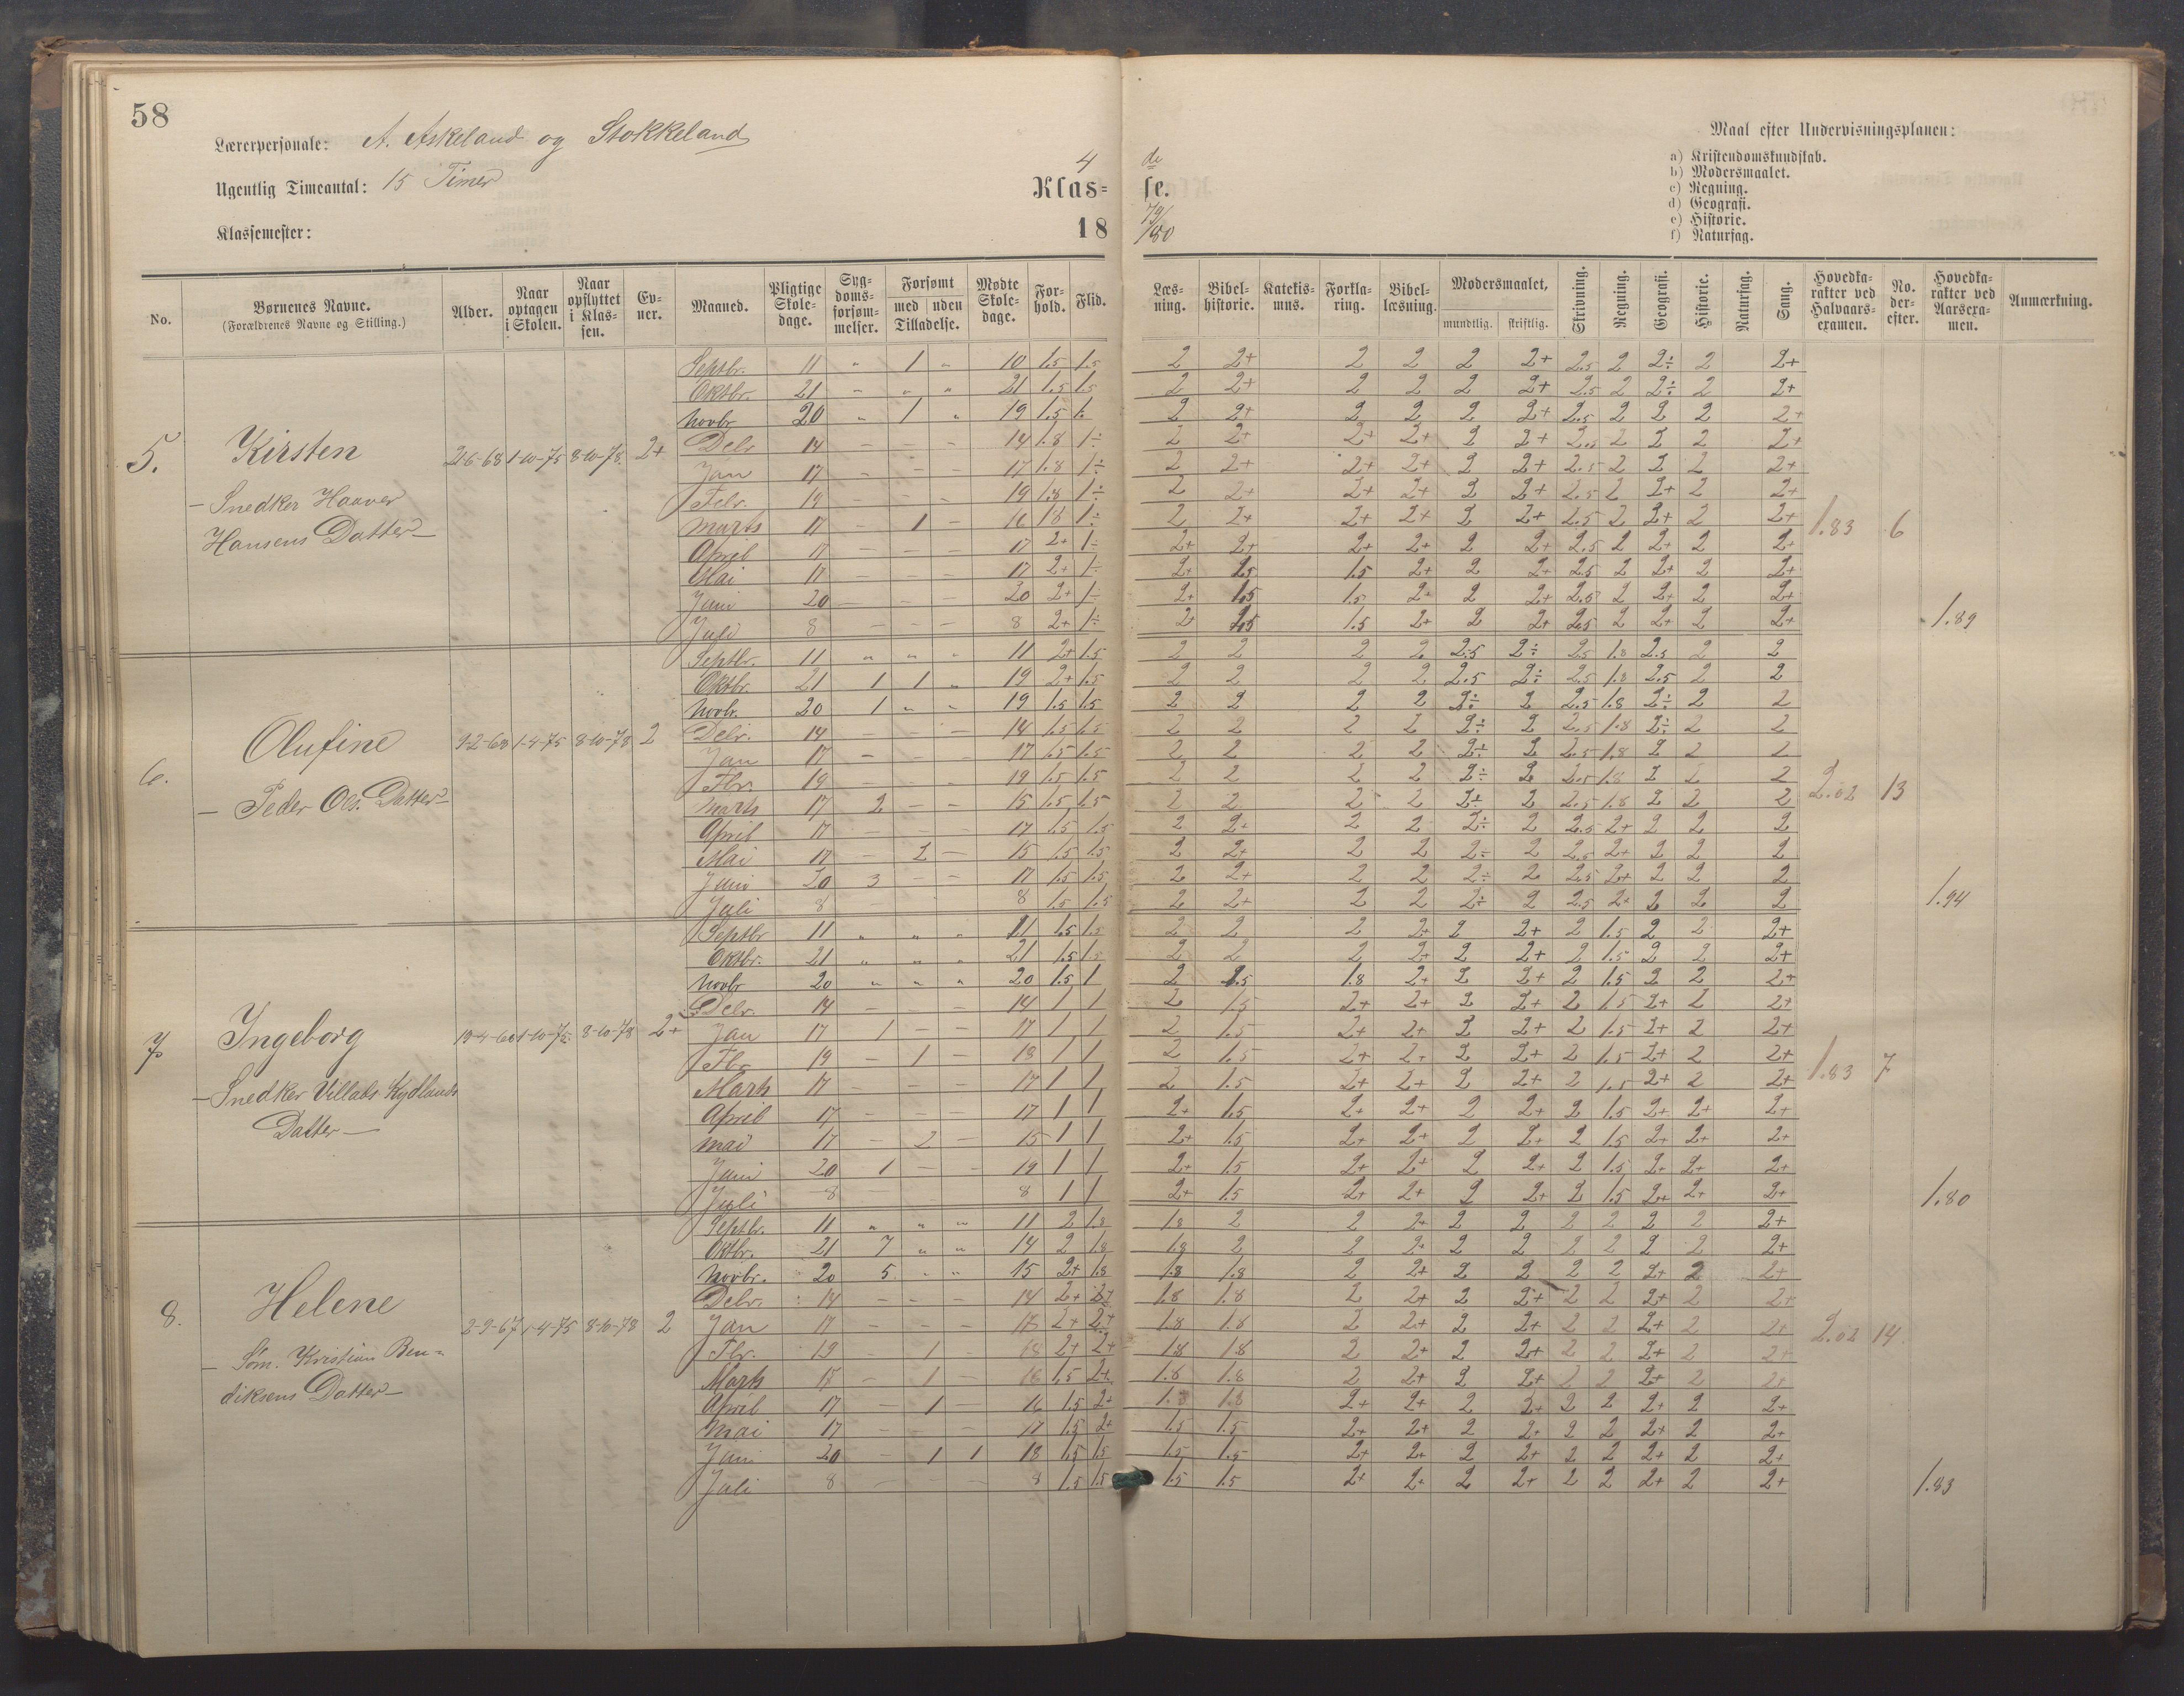 58
Lærerpersonale: A. Askeland og Stokkeland
Ugentlig Timeantal: 15 Timer
Klassemester:
4 de
Klas= se.
18 79/80
Maal efter Undervisningsplanen:
a) Kristendomskundskab.
b) Modersmaalet.
c) Regning.
d) Geografi.
e) Historie.
f) Naturfag.
No. Børnenes Navne. (Forældrenes Navne og Stilling.) Alder. Naar optagen i Skolen. Naar opflyttet i Klassen. Evner. Maaned. Pligtige Skoledage. Sygdomsforsømmelser. Forsømt med uden Tilladelse. Mødte Skoledage. Forhold. Flid. Læsning. Bibelhistorie. Katekismus. Forklaring. Bibellæsning. Modersmaalet, mundtlig. skriftlig. Skrivning. Regning. Geografi. Historie. Naturfag. Sang. Hovedkarakter ved Halvaarsexamen. No. derefter. Hovedkarakter ved Aarsexamen. Anmærkning.
5. Kirsten 1-10-75 8-10-78 2+
- Snedker Haaver
Hansens Datter -
Septbr. 11 " 1 " 10 1.5 1.5 2 2+ 2 2 2 2+ 2.5 2 2÷ 2 2+
Oktbr. 21 " " " 21 1.5 1.5 2 2+ 2 2 2 2+ 2.5 2 2÷ 2 2+
Novbr 20 " 1 " 19 1.5 2 2+ 2 2 2 2+ 2.5 2 2 2 2+
Debr 14 - - - 14 1.8 1÷ 2 2+ 2+ 2+ 2 2+ 2.5 2 2 2 2+
Jan 17 - - - 17 1.8 1÷ 2 2+ 2+ 2+ 2 2+ 2.5 2 2 2 2+
Febr. 19 - - - 19 1.8 1÷ 2 2+ 2+ 2+ 2 2+ 2.5 2 2+ 2 2+
Marts 17 - 1 - 16 1.8 1÷ 2 2+ 2+ 2+ 2 2+ 2.5 2 2+ 2 2+ 1.83 6
April 17 - - - 17 2+ 1÷ 2+ 2+ 2+ 2+ 2 2+ 2.5 2 2+ 2 2+
Mai 17 - - - 17 2+ 1÷ 2+ 1.5 2+ 2 2+ 2.5 2 2+ 2 2+
Juni 20 - - - 20 2+ 1÷ 2+ 1.5 1.5 2+ 2 2+ 2.5 2 2+ 2 2+
Juli 8 - - - 8 2+ 1÷ 2+ 1.5 1.5 2+ 2 2+ 2.5 2 2+ 2 2+ 1.89
6. Olufine 1-4-75 8-10-78 2
- Peder Ols. Datter -
Septbr. 11 " " " 11 2+ 1.5 2 2 2 2 2.5 2÷ 2.5 1.8 2.5 2 2
Oktbr. 21 1 1 " 19 2+ 1.5 2 2 2 2 2.5 2÷ 2.5 1.8 2.5 2 2
Novbr. 20 1 " " 19 1.5 1.5 2 2 2 2 2÷ 2 2.5 1.8 2÷ 2 2
Debr. 14 - - - 14 1.5 1.5 2 2 2 2 2÷ 2 2.5 1.8 2÷ 2 2
Jan 17 - - - 17 1.5 1.5 2 2 2 2 2÷ 2 2.5 1.8 2 2 2
Fbr. 19 - - - 19 1.5 1.5 2 2 2 2 2÷ 2 2.5 1.8 2 2 2
Marts 17 2 - - 15 1.5 1.5 2 2 2 2 2÷ 2 2.5 1.8 2 2 2 2.02 13
April 17 - - - 17 1.5 1.5 2 2+ 2 2 2÷ 2 2.5 2+ 2 2 2
Mai 17 - 2 - 15 1.5 1.5 2 2+ 2 2 2÷ 2 2.5 2+ 2 2 2
Juni 20 3 - - 17 1.5 1.5 2 2+ 2 2 2÷ 2 2.5 2+ 2 2 2
Juli 8 - 8 1.5 1.5 2 2+ 2 2 2÷ 2 2.5 2+ 2 2 2 1.94
7. Ingeborg 1-10-75 8-10-78 2+
- Snedker Villads Kydlands
Datter -
Septbr 11 " " " 11 1.5 1.5 2 2 2 2+ 2 2+ 2 1.5 2 2 2+
Oktbr. 21 " " " 21 1.5 1.5 2 2 2 2+ 2 2+ 2 1.5 2 2 2+
Novbr 20 " " " 20 1.5 1 2 1.5 1.8 2+ 2 2+ 2 1.5 2 2 2+
Debr. 14 - - - 14 1 1 2 1.5 2+ 2+ 2 2+ 2 1.5 2+ 2 2+
Jan 17 1 - - 17 1 1 2 1.5 2+ 2+ 2 2+ 2 1.5 2+ 2 2+
Fbr 19 - 1 - 18 1 1 2 1.5 2+ 2+ 2 2+ 2 1.5 2+ 2 2+
Marts 17 - - - 17 1 1 2 1.5 2+ 2+ 2 2+ 2 1.5 2+ 2 2+ 1.83 7
April 17 - - - 17 1 1 2+ 1.5 2+ 2+ 2 2+ 2 1.5 2+ 2+ 2+
Mai 17 - 2 - 15 1 1 2+ 1.5 2+ 2+ 2 2+ 2 1.5 2+ 2+ 2+
Juni 20 1 - - 19 1 1 2+ 1.5 2+ 2+ 2 2+ 2 1.5 2+ 2+ 2+
Juli 8 8 1 1 2+ 1.5 2+ 2+ 2 2+ 2 1.5 2+ 2+ 2+ 1.80
8. Helene 2-9-67 1-4-75 8-10-78 2
- Søm. Kristian Ben=
diksens Datter -
Septbr. 11 " " " 11 2 1.8 1.8 2 2 2+ 2 2 2 2 2 2 2+
Oktbr. 21 7 " " 14 2 1.8 1.8 2 2 2+ 2 2 2 2 2 2 2+
Novbr. 20 5 " " 15 2+ 1.8 1.8 1.8 2 2+ 2 2 2 2 2+ 2 2+
Debr. 14 - - - 14 2+ 2+ 1.8 1.8 2 2+ 2 2+ 2 2 2+ 2 2+
Jan 17 - - - 17 2+ 2+ 1.8 1.8 2 2+ 2 2+ 2 2 2+ 2 2+
Fbr. 19 - 1 - 18 2+ 2+ 1.8 1.8 2 2+ 2 2+ 2 2 2+ 2 2+ 2.02 14.
Marts 17 - 1 - 16 1.5 2+ 1.8 1.8 2 2+ 2 2+ 2 2 2+ 2 2+
April 17 - 1 - 16 1.5 2+ 1.8 1.8 2+ 2+ 2 2+ 2 2 2+ 2 2+
Mai 17 - - - 17 1.5 2+ 1.5 1.5 2+ 2+ 2 2+ 2 2 2+ 2 2+
Juni 20 - 1 1 18 1.5 1.5 1.5 1.5 2+ 2+ 2 2+ 2 2 2+ 2 2+
Juli 8 - - - 8 1.5 1.5 1.5 1.5 2+ 2+ 2 2+ 2 2 2+ 2 2+ 1.83